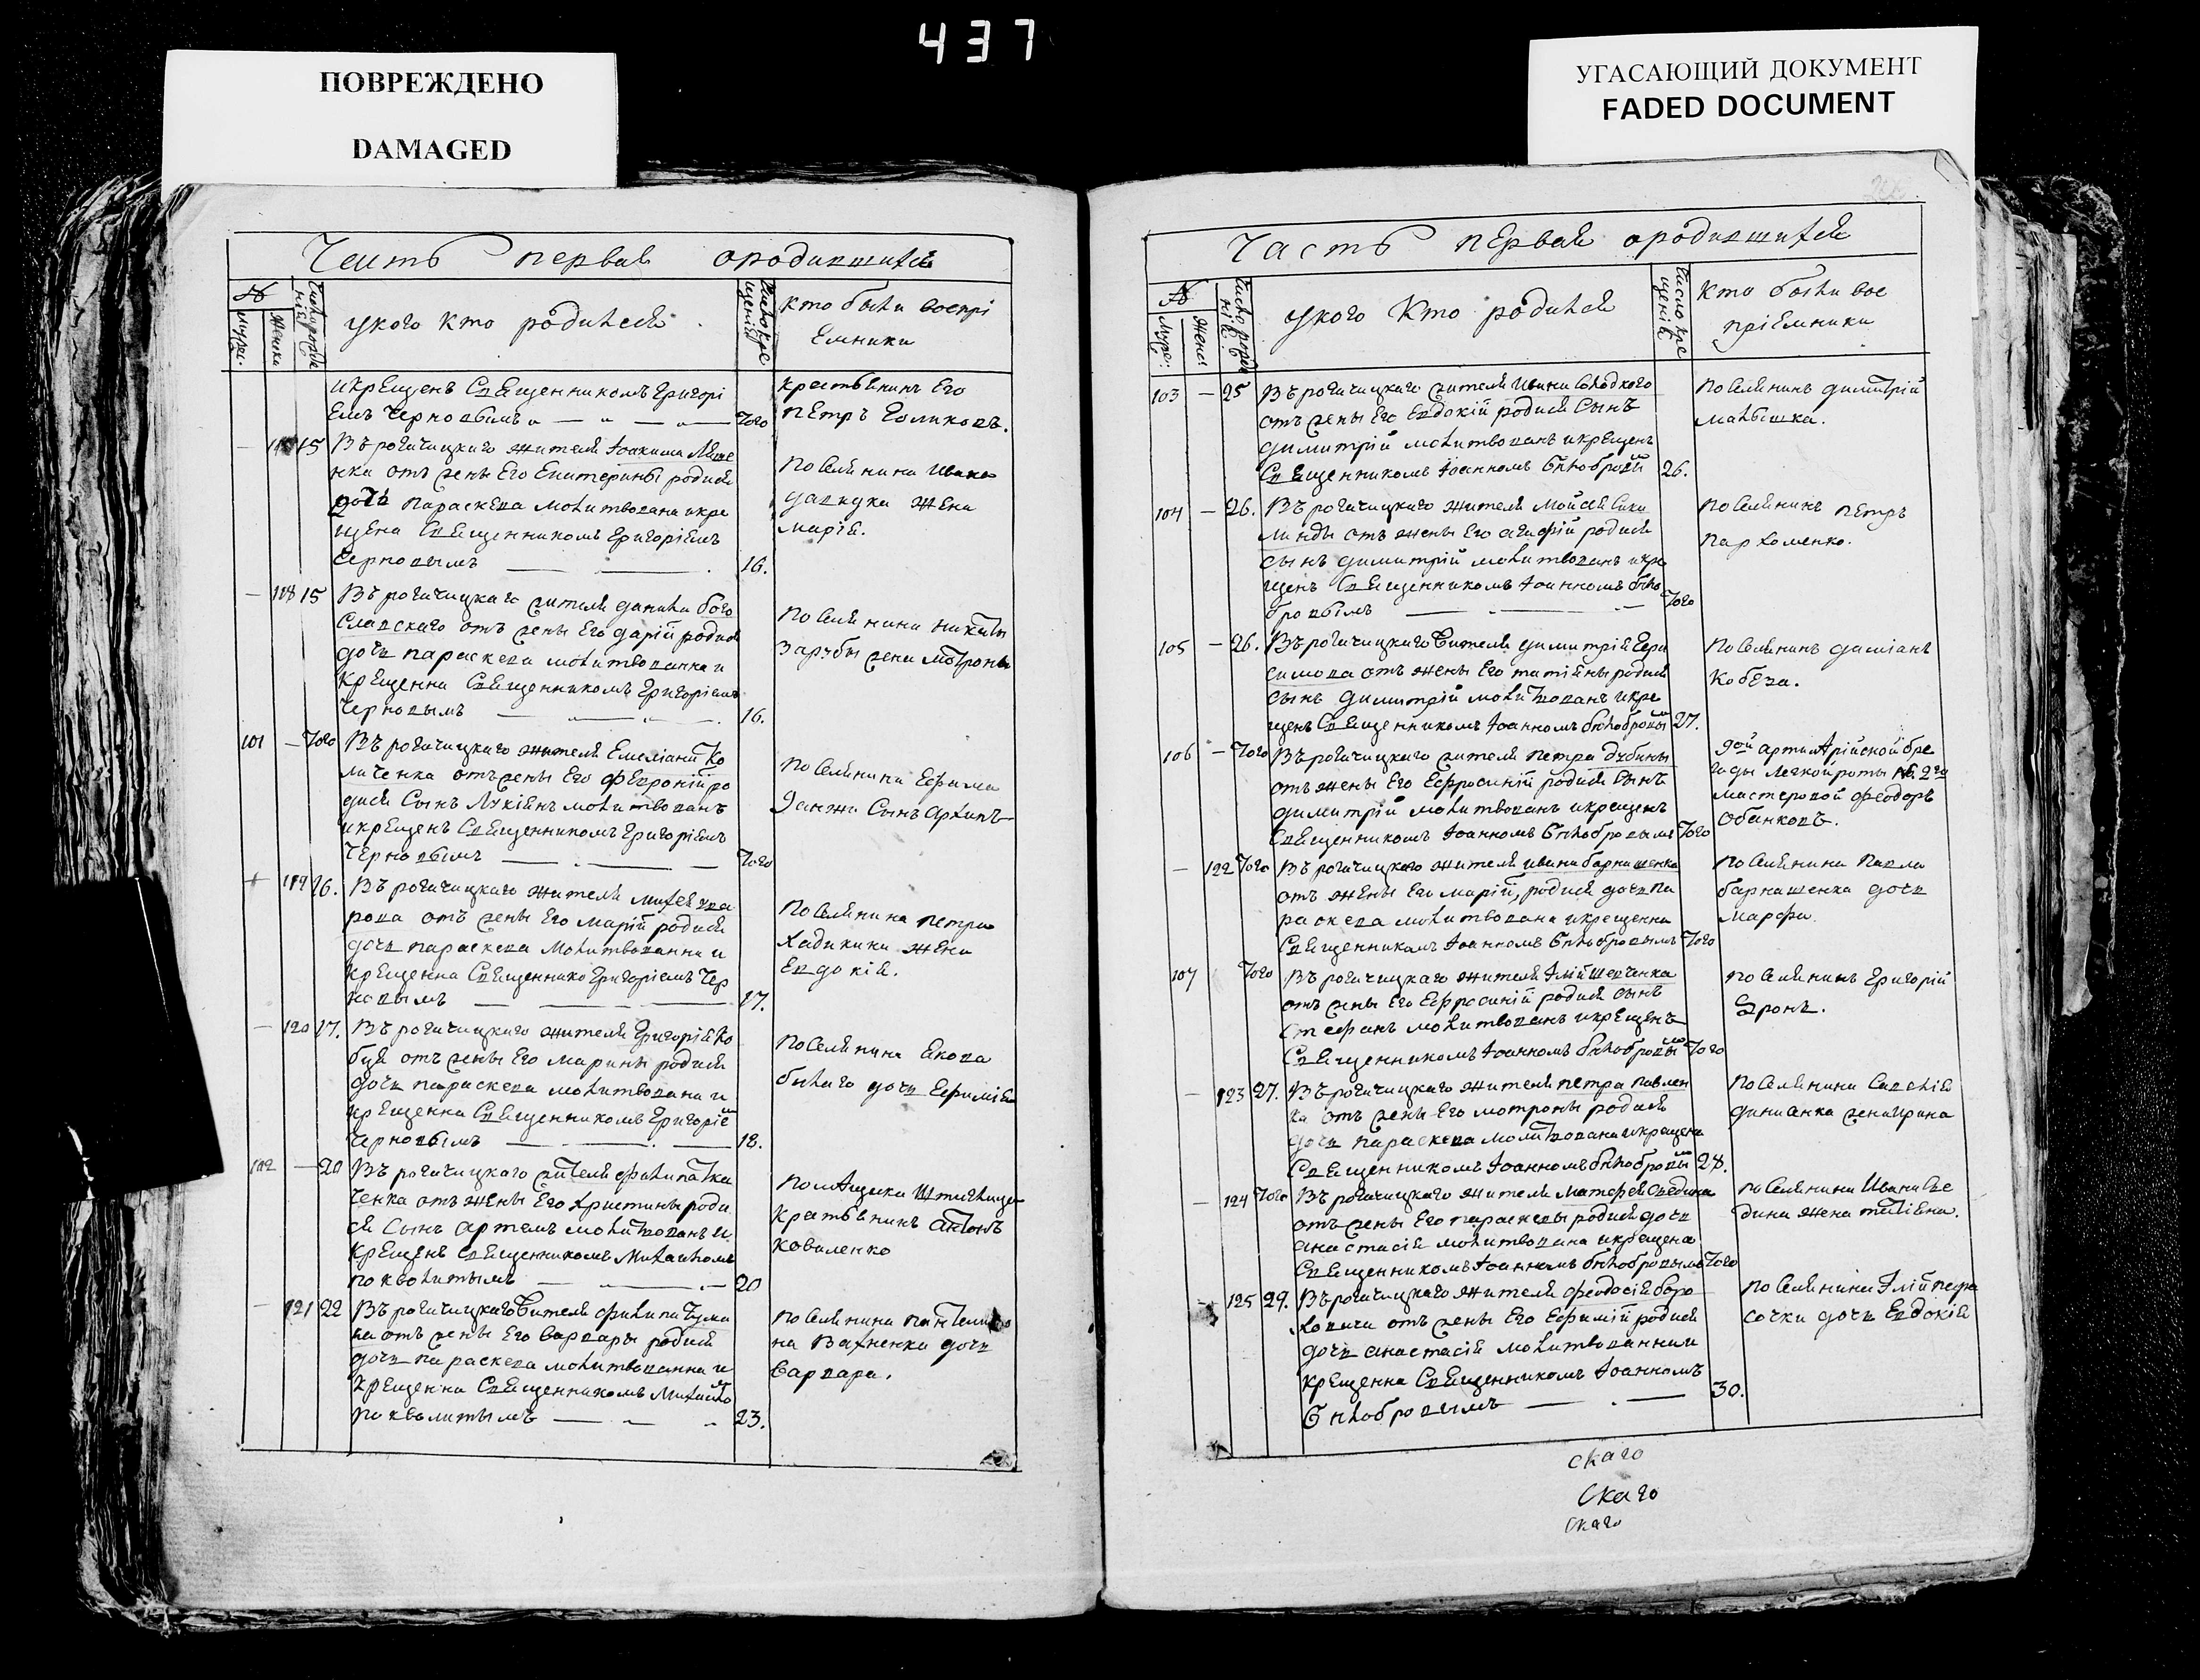 437
ПОВРЕЖДЕНО
DAMAGED
УГАСАЮЩИЙ ДОКУМЕНТ
FADED DOCUMENT
Честь первая ородившихся
№
Муже:
Женска
Число рожде
нія
укого кто родился
Число кре
щенія
Кто были воспрі
Емники
икрещенъ Священникомъ Григорі
Емъ Черновымъ
того
крестьянинъ Его
Петръ Голиковъ.
15
Въ рогачицкаго жителя Іоакима
нка отъ жены Его Екатерины родися
дочь Параскева молитвована икре
щена Священникомъ Григоріемъ
Черновымъ
16.
Поселянина Ивана
жена
Марія.
118 15
Въ рогачицкаго жителя данила бого
славскаго отъ жены Его Дарій родися
дочь параскева молитвованна и
Крещенна Священникомъ Григоріемъ
Черновымъ
16.
Поселянина Никиты
Зарубы жена Мотрона
101 — того
Въ рогачицкаго жителя Емеліана Ко
личенка отъ жены Его Февроній ро
дися Сынъ Лукіянъ молитвованъ
икрещенъ Священникомъ Григоріемъ
Черновымъ
того
поселянина Ефима
Ганжи Сынъ Архипъ
119 16.
Въ рогачицкаго жителя Михея ува
рова отъ жены Его Марій родися
дочь параскева молитвованна и
крещенна Священнико Григоріемъ Чер
новымъ
17.
Поселянина петра
Кадикина жена
Евдокія.
— 120 17.
Въ рогачицкаго жителя Григорій Ко
буя отъ жены Его Марины родися
дочь параскева молитвована и
крещенна Священникомъ Григоріе
Черновымъ
18.
Поселянина Якова
бѣлаго дочь Ефимія
102 — 20
Въ рогачицкаго жителя филипа Тка
ченка отъ жены Его Христины роди
ся Сынъ артемъ молитвованъ и
крещенъ Священникомъ Михаиломъ
поквалитымъ
20
помѣщика
крестьянинъ антонъ
Коваленко
— 121 22
Въ рогачицкаго жителя филипа Чума
ка отъ жены Его Варвары родися
дочь параскева молитвованна и
Крещенна Священникомъ Михаило
поквалитымъ
23.
поселянина пантелимо
на Вахненка дочь
Варвара.
Часть первая ородившихся
№
Муже:
Женс:
Число рожде
нія
укого Кто родился
Число кре
щенія
Кто были вос
пріемники
103 — 25
Въ рогачицкаго жителя Ивана Солодкого
отъ жены Его Евдокій родися Сынъ
димитрій молитвованъ икрещенъ
Священникомъ Іоанномъ Бѣлобровы
26.
поселянинъ димитрій
малышка.
104 — 26.
Въ рогачицкаго жителя Мойсея Сика
линды отъ жены Его агафій родися
сынъ димитрій молитвованъ икре
щенъ Священникомъ Іоанномъ бѣло
бровымъ
того
поселянинъ петръ
пархоменко.
105 — 26.
Въ рогачицкаго жителя димитрій Гера
симова отъ жены Его татіяны родися
сынъ димитрій молитвованъ икре
щенъ Священникомъ Іоанномъ бѣлобровы
27.
поселянинъ даміянъ
кобеза.
106 — того
Въ рогачицкаго жителя петра дубины
отъ жены Его Ефросиній родися Сынъ
димитрій молитвованъ икрещенъ
Священникомъ Іоанномъ бѣлобровымъ
того
9ой артилѣрійской бре
гады легкой роты № 2го
мастеровой феодоръ
Обанковъ.
— 122 того
Въ рогачицкаго жителя ивана барнашенка
отъ жены Его марій, родися дочь па
раскева молитвована икрещенна
Священникамъ Іоанномъ бѣлобровымъ
того
поселянина павла
барнашенка дочь
марфа.
107 того
Въ рогачицкаго жителя Илій шевченка
отъ жены Его Ефросиній родися сынъ
Стефанъ молитвованъ икрещенъ
Священникомъ Іоанномъ бѣлобровы
того
поселянинъ Григорій
Дронъ.
— 123 27.
Въ рогачицкаго жителя петра павлен
ка отъ жены Его мотроны родися
дочь параскева молитвована икрещена
Священникомъ Іоанномъ бѣлобровы
28.
поселянина Савелія
дианка жена ирина
— 124 того
Въ рогачицкаго жителя матфея Съедина
отъ жены Его параскевы родися дочь
анастасія молитвована икрещена
Священникомъ Іоанномъ бѣлобровымъ
того
поселянина Ивана Сье
дина жена татіяна.
125 29.
Въ рогачицкаго жителя феодосія боро
ховича отъ жены Его Ефимій родися
дочь анастасія молитвованна и
крещенна Священникомъ Іоанномъ
бѣлобровымъ
30.
поселянина Илій пере
сочки дочь Евдокія
скаго
Скаго
скаго